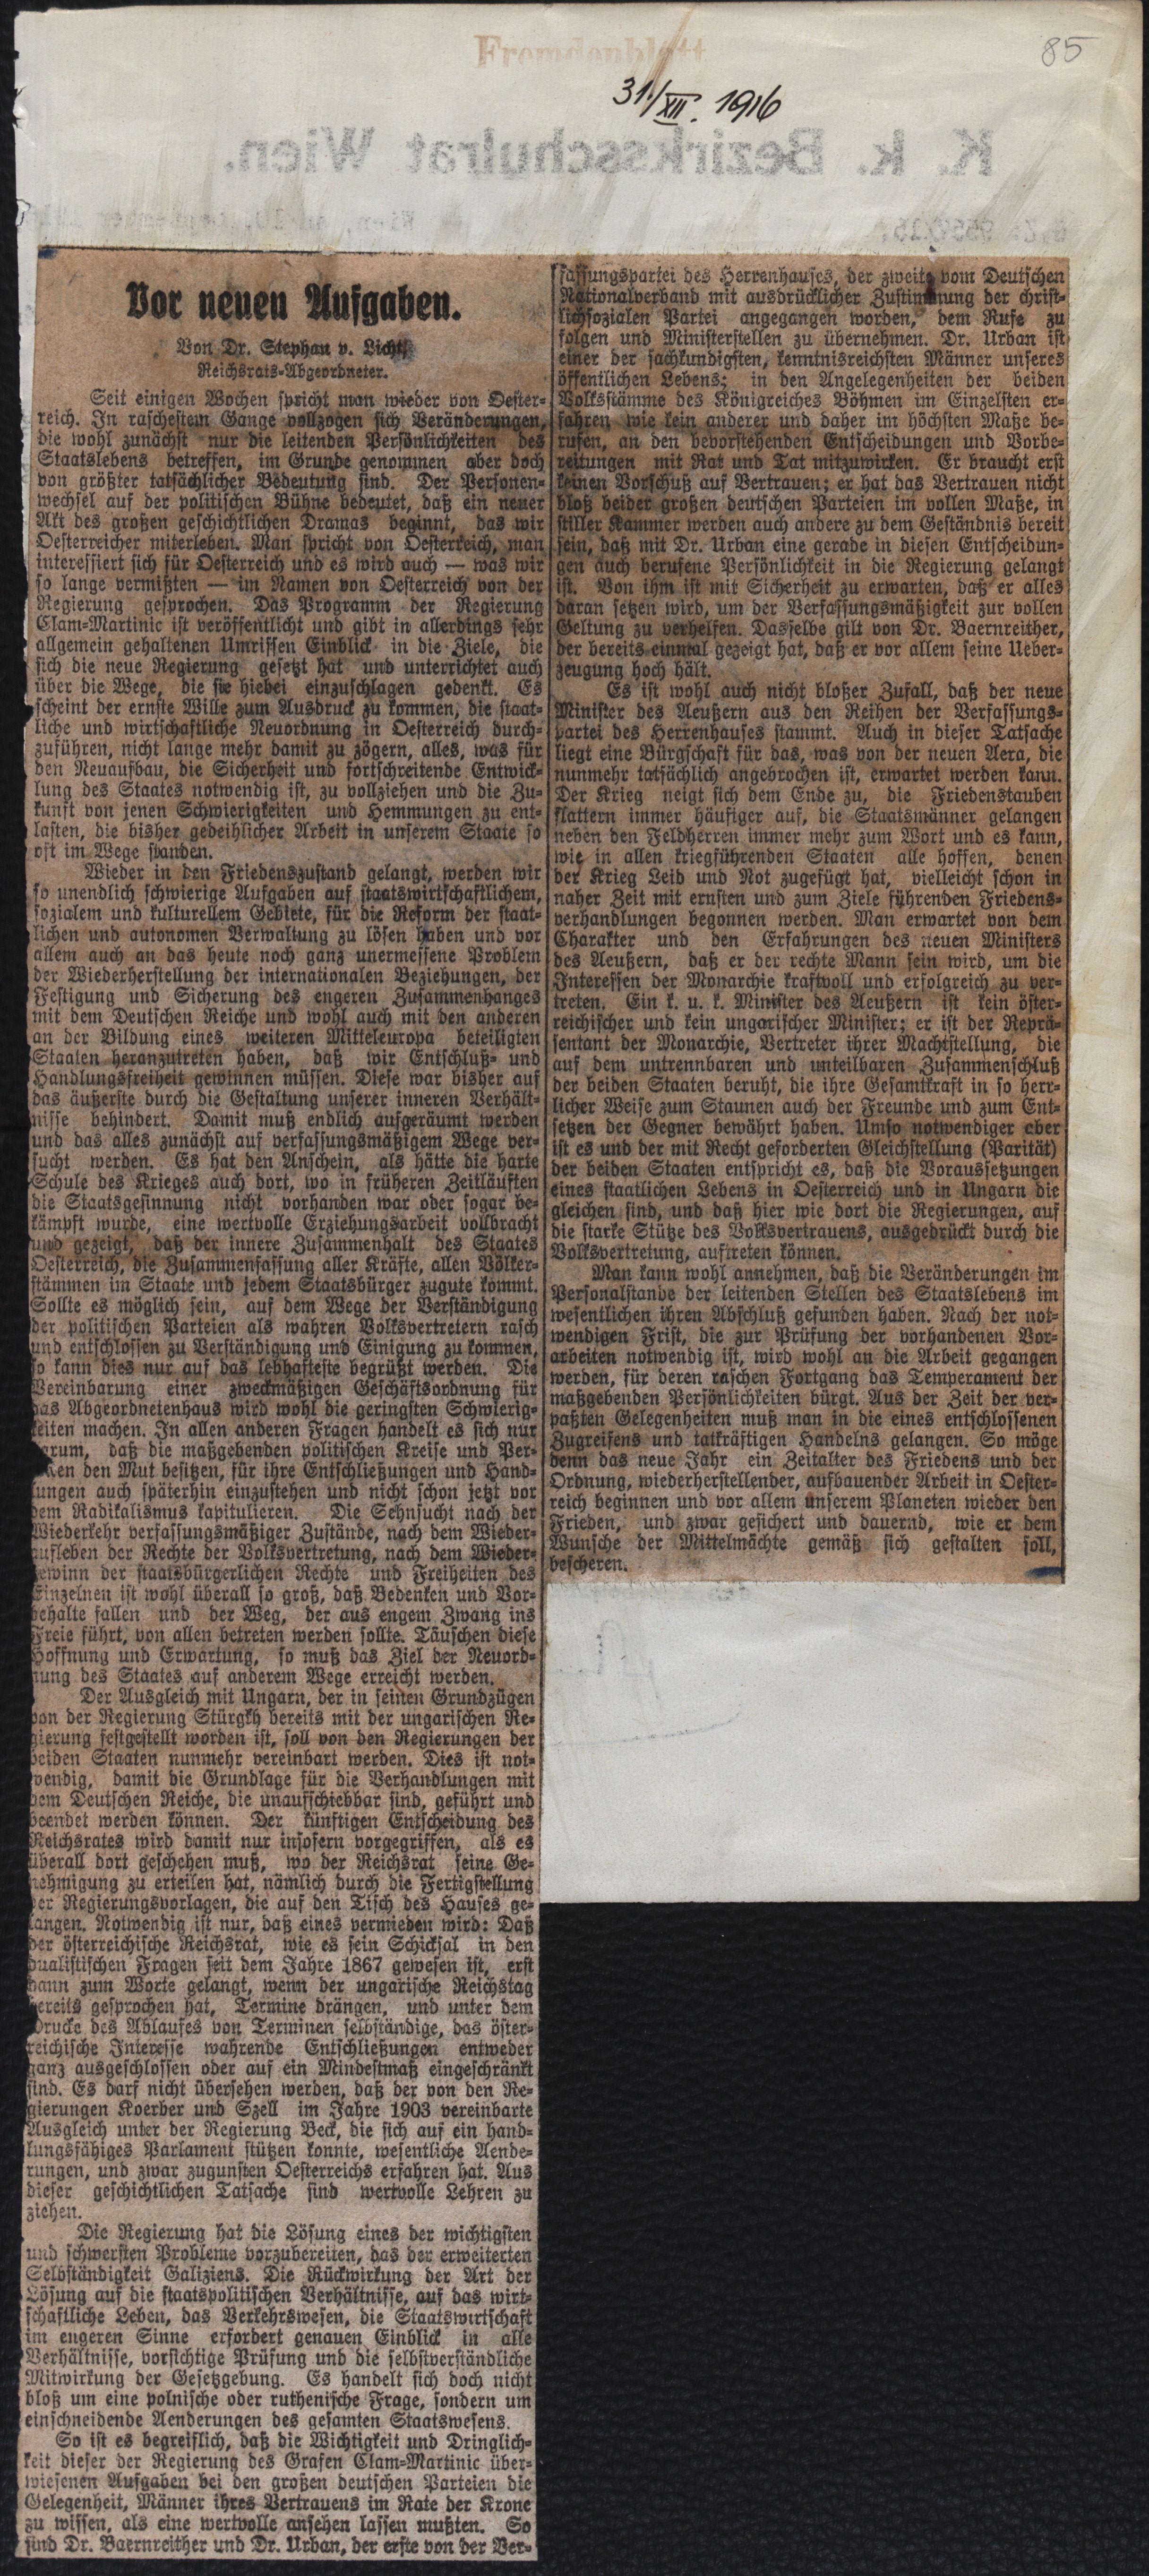 Fremdenblatt
85
31./XII. 1916
K. k. Bezirksschulrat Wien.
Vor neuen Aufgaben.
Von Dr. Stephan v. Licht,
Reichsrats-Abgeordneter.
Seit einigen Wochen spricht man wieder von Oester-
reich. In raschestem Gange vollzogen sich Veränderungen,
die wohl zunächst nur die leitenden Persönlichkeiten des
Staatslebens betreffen, im Grunde genommen aber doch
von größter tatsächlicher Bedeutung sind. Der Personen-
wechsel auf der politischen Bühne bedeutet, daß ein neuer
Akt des großen geschichtlichen Dramas beginnt, das wir
Oesterreicher miterleben. Man spricht von Oesterreich, man
interessiert sich für Oesterreich und es wird auch — was wir
so lange vermißten — im Namen von Oesterreich von der
Regierung gesprochen. Das Programm der Regierung
Clam-Martinic ist veröffentlicht und gibt in allerdings sehr
allgemein gehaltenen Umrissen Einblick in die Ziele, die
sich die neue Regierung gesetzt hat und unterrichtet auch
über die Wege, die sie hiebei einzuschlagen gedenkt. Es
scheint der ernste Wille zum Ausdruck zu kommen, die staat-
liche und wirtschaftliche Neuordnung in Oesterreich durch-
zuführen, nicht lange mehr damit zu zögern, alles, was für
den Neuaufbau, die Sicherheit und fortschreitende Entwick-
lung des Staates notwendig ist, zu vollziehen und die Zu-
kunft von jenen Schwierigkeiten und Hemmungen zu ent-
lasten, die bisher gedeihlicher Arbeit in unserem Staate so
oft im Wege standen.
Wieder in den Friedenszustand gelangt, werden wir
so unendlich schwierige Aufgaben auf staatswirtschaftlichem,
sozialem und kulturellem Gebiete, für die Reform der staat-
lichen und autonomen Verwaltung zu lösen haben und vor
allem auch an das heute noch ganz unermessene Problem
der Wiederherstellung der internationalen Beziehungen, der
Festigung und Sicherung des engeren Zusammenhanges
mit dem Deutschen Reiche und wohl auch mit den anderen
an der Bildung eines weiteren Mitteleuropa beteiligten
Staaten heranzutreten haben, daß wir Entschluß- und
Handlungsfreiheit gewinnen müssen. Diese war bisher auf
das äußerste durch die Gestaltung unserer inneren Verhält-
nisse behindert. Damit muß endlich aufgeräumt werden
und das alles zunächst auf verfassungsmäßigem Wege ver-
sucht werden. Es hat den Anschein, als hätte die harte
Schule des Krieges auch dort, wo in früheren Zeitläuften
die Staatsgesinnung nicht vorhanden war oder sogar be-
kämpft wurde, eine wertvolle Erziehungsarbeit vollbracht
und gezeigt, daß der innere Zusammenhalt des Staates
Oesterreich, die Zusammenfassung aller Kräfte, allen Völker-
stämmen im Staate und jedem Staatsbürger zugute kommt.
Sollte es möglich sein, auf dem Wege der Verständigung
der politischen Parteien als wahren Volksvertretern rasch
und entschlossen zu Verständigung und Einigung zu kommen,
so kann dies nur auf das lebhafteste begrüßt werden. Die
Vereinbarung einer zweckmäßigen Geschäftsordnung für
das Abgeordnetenhaus wird wohl die geringsten Schwierig-
keiten machen. In allen anderen Fragen handelt es sich nur
arum, daß die maßgebenden politischen Kreise und Per-
en den Mut besitzen, für ihre Entschließungen und Hand-
lungen auch späterhin einzustehen und nicht schon jetzt vor
dem Radikalismus kapitulieren. Die Sehnsucht nach der
Wiederkehr verfassungsmäßiger Zustände, nach dem Wieder-
aufleben der Rechte der Volksvertretung, nach dem Wieder-
gewinn der staatsbürgerlichen Rechte und Freiheiten des
Einzelnen ist wohl überall so groß, daß Bedenken und Vor-
behalte fallen und der Weg, der aus engem Zwang ins
Freie führt, von allen betreten werden sollte. Täuschen diese
Hoffnung und Erwartung, so muß das Ziel der Neuord-
nung des Staates auf anderem Wege erreicht werden.
Der Ausgleich mit Ungarn, der in seinen Grundzügen
von der Regierung Stürgkh bereits mit der ungarischen Re-
gierung festgestellt worden ist, soll von den Regierungen der
beiden Staaten nunmehr vereinbart werden. Dies ist not-
wendig, damit die Grundlage für die Verhandlungen mit
dem Deutschen Reiche, die unaufschiebbar sind, geführt und
beendet werden können. Der künftigen Entscheidung des
Reichsrates wird damit nur insofern vorgegriffen, als es
überall dort geschehen muß, wo der Reichsrat seine Ge-
nehmigung zu erteilen hat, nämlich durch die Fertigstellung
der Regierungsvorlagen, die auf den Tisch des Hauses ge-
langen. Notwendig ist nur, daß eines vermieden wird: Daß
der österreichische Reichsrat, wie es sein Schicksal in den
dualistischen Fragen seit dem Jahre 1867 gewesen ist, erst
dann zum Worte gelangt, wenn der ungarische Reichstag
bereits gesprochen hat, Termine drängen, und unter dem
Drucke des Ablaufes von Terminen selbständige, das öster-
reichische Interesse wahrende Entschließungen entweder
ganz ausgeschlossen oder auf ein Mindestmaß eingeschränkt
sind. Es darf nicht übersehen werden, daß der von den Re-
gierungen Koerber und Szell im Jahre 1903 vereinbarte
Ausgleich unter der Regierung Beck, die sich auf ein hand-
lungsfähiges Parlament stützen konnte, wesentliche Aende-
rungen, und zwar zugunsten Oesterreichs erfahren hat. Aus
dieser geschichtlichen Tatsache sind wertvolle Lehren zu
ziehen.
Die Regierung hat die Lösung eines der wichtigsten
und schwersten Probleme vorzubereiten, das der erweiterten
Selbständigkeit Galiziens. Die Rückwirkung der Art der
Lösung auf die staatspolitischen Verhältnisse, auf das wirt-
schaftliche Leben, das Verkehrswesen, die Staatswirtschaft
im engeren Sinne erfordert genauen Einblick in alle
Verhältnisse, vorsichtige Prüfung und die selbstverständliche
Mitwirkung der Gesetzgebung. Es handelt sich doch nicht
bloß um eine polnische oder ruthenische Frage, sondern um
einschneidende Aenderungen des gesamten Staatswesens.
So ist es begreiflich, daß die Wichtigkeit und Dringlich-
keit dieser der Regierung des Grafen Clam-Martinic über-
wiesenen Aufgaben bei den großen deutschen Parteien die
Gelegenheit, Männer ihres Vertrauens im Rate der Krone
zu wissen, als eine wertvolle ansehen lassen mußten. So
sind Dr. Baernreither und Dr. Urban, der erste von der Ver-
fassungspartei des Herrenhauses, der zweite vom Deutschen
Nationalverband mit ausdrücklicher Zustimmung der christ-
lichsozialen Partei angegangen worden, dem Rufe zu
folgen und Ministerstellen zu übernehmen. Dr. Urban ist
einer der sachkundigsten, kenntnisreichsten Männer unseres
öffentlichen Lebens; in den Angelegenheiten der beiden
Volksstämme des Königreiches Böhmen im Einzelsten er-
fahren wie kein anderer und daher im höchsten Maße be-
rufen, an den bevorstehenden Entscheidungen und Vorbe-
reitungen mit Rat und Tat mitzuwirken. Er braucht erst
keinen Vorschuß auf Vertrauen; er hat das Vertrauen nicht
bloß beider großen deutschen Parteien im vollen Maße, in
stiller Kammer werden auch andere zu dem Geständnis bereit
sein, daß mit Dr. Urban eine gerade in diesen Entscheidun-
gen auch berufene Persönlichkeit in die Regierung gelangt
ist. Von ihm ist mit Sicherheit zu erwarten, daß er alles
daran setzen wird, um der Verfassungsmäßigkeit zur vollen
Geltung zu verhelfen. Dasselbe gilt von Dr. Baernreither,
der bereits einmal gezeigt hat, daß er vor allem seine Ueber-
zeugung hoch hält.
Es ist wohl auch nicht bloßer Zufall, daß der neue
Minister des Aeußern aus den Reihen der Verfassungs-
partei des Herrenhauses stammt. Auch in dieser Tatsache
liegt eine Bürgschaft für das, was von der neuen Aera, die
nunmehr tatsächlich angebrochen ist, erwartet werden kann.
Der Krieg neigt sich dem Ende zu, die Friedenstauben
flattern immer häufiger auf, die Staatsmänner gelangen
neben den Feldherren immer mehr zum Wort und es kann,
wie in allen kriegführenden Staaten alle hoffen, denen
der Krieg Leid und Not zugefügt hat, vielleicht schon in
naher Zeit mit ernsten und zum Ziele führenden Friedens-
verhandlungen begonnen werden. Man erwartet von dem
Charakter und den Erfahrungen des neuen Ministers
des Aeußern, daß er der rechte Mann sein wird, um die
Interessen der Monarchie kraftvoll und erfolgreich zu ver-
treten. Ein k. u. k. Minister des Aeußern ist kein öster-
reichischer und kein ungarischer Minister; er ist der Reprä-
sentant der Monarchie, Vertreter ihrer Machtstellung, die
auf dem untrennbaren und unteilbaren Zusammenschluß
der beiden Staaten beruht, die ihre Gesamtkraft in so herr-
licher Weise zum Staunen auch der Freunde und zum Ent-
setzen der Gegner bewährt haben. Umso notwendiger aber
ist es und der mit Recht geforderten Gleichstellung (Parität)
der beiden Staaten entspricht es, daß die Voraussetzungen
eines staatlichen Lebens in Oesterreich und in Ungarn die
gleichen sind, und daß hier wie dort die Regierungen, auf
die starke Stütze des Volksvertrauens, ausgedrückt durch die
Volksvertretung, auftreten können.
Man kann wohl annehmen, daß die Veränderungen im
Personalstande der leitenden Stellen des Staatslebens im
wesentlichen ihren Abschluß gefunden haben. Nach der not-
wendigen Frist, die zur Prüfung der vorhandenen Vor-
arbeiten notwendig ist, wird wohl an die Arbeit gegangen
werden, für deren raschen Fortgang das Temperament der
maßgebenden Persönlichkeiten bürgt. Aus der Zeit der ver-
paßten Gelegenheiten muß man in die eines entschlossenen
Zugreifens und tatkräftigen Handelns gelangen. So möge
denn das neue Jahr ein Zeitalter des Friedens und der
Ordnung, wiederherstellender, aufbauender Arbeit in Oester-
reich beginnen und vor allem unserem Planeten wieder den
Frieden, und zwar gesichert und dauernd, wie er dem
Wunsche der Mittelmächte gemäß sich gestalten soll,
bescheren.